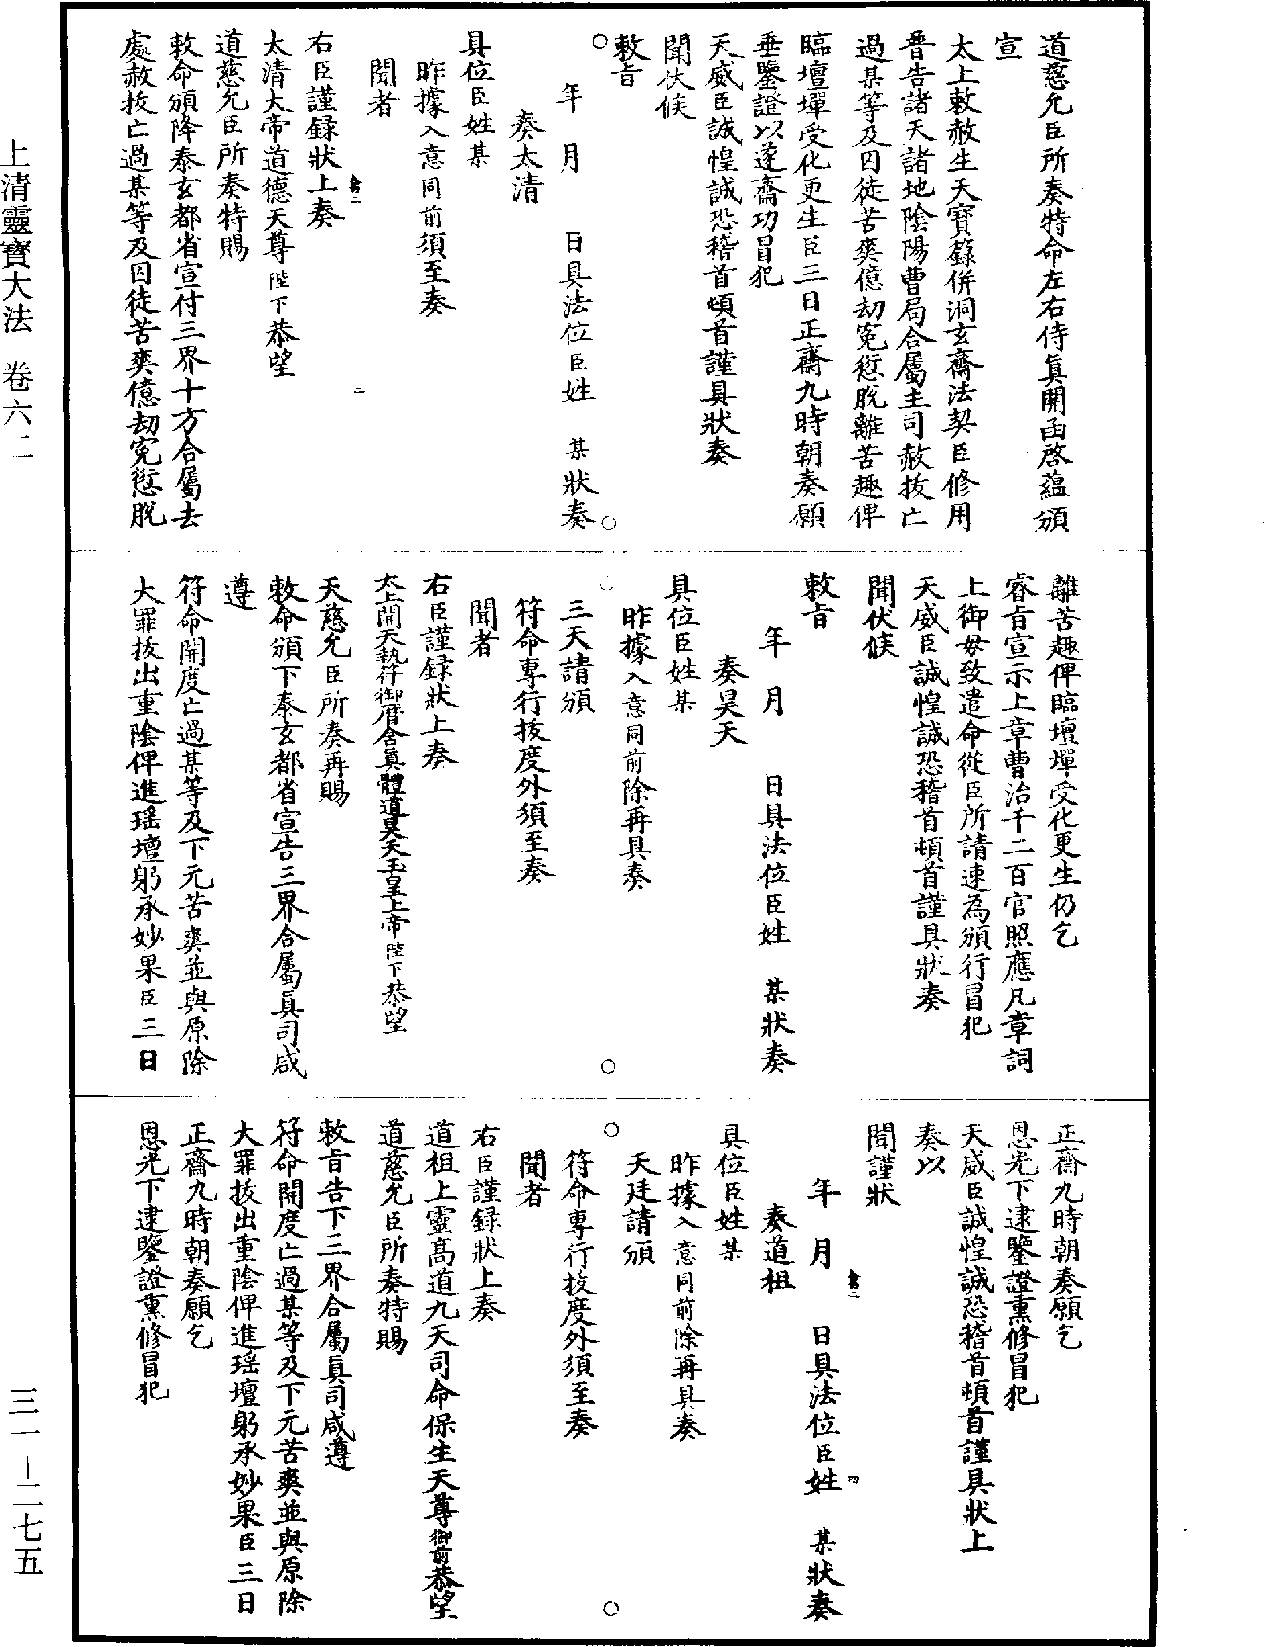 道慈允臣所奏特命左右侍眞開函啓蘊頒
宣
太上敕赦生天寶籙併洞玄齋法契臣修用
晉告諸天諸地陰陽曹局合屬主司赦拔亡
過某等及囚徒苦爽億劫冤愆脫離苦趣俾
臨壇墠受化更生臣三日正齋九時朝奏願
垂鑒證以遂齋功冒犯
天威臣誠惶誠恐稽首頓首謹具狀奏
聞伏候
敕旨
年 月 日具法位臣姓 某狀奏
奏太清
具位臣姓某
昨據入意同前須至奏
聞者
右臣謹錄狀上奏
太清大帝道德天尊陛下恭望
道慈允臣所奏特賜
敕命頒降泰玄都省宣付三界十方合屬去
處赦拔亡過某等及囚徒苦爽億劫冤愆脫
離苦趣俾臨壇墠受化更生仍乞
睿旨宣示上章曹治千二百官照應凡章詞
上御毋致遣命從臣所請速為頒行冒犯
天威臣誠惶誠恐稽首頓首謹具狀奏
聞伏候
敕旨
年 月 日具法位臣姓 某狀奏
奏昊天
具位臣姓某
昨據入意同前除再具奏
三天請頒
符命專行拔度外須至奏
聞者
右臣謹錄狀上奏
太上開天執符御曆含眞體道昊天玉皇上帝陛下恭望
天慈允臣所奏再賜
敕命頒下泰玄都省宣告三界合屬眞司咸
遵
符命開度亡過某等及下元苦爽並與原除
大罪拔出重陰俾進瑤壇躬承妙果臣三日
正齋九時朝奏願乞
恩光下逮鑒證熏修冒犯
天威臣誠惶誠恐稽首頓首謹具狀上
奏以
聞謹狀
年 月 日具法位臣姓 某狀奏
奏道祖
具位臣姓某
昨據入意同前除再具奏
天廷請頒
符命專行拔度外須至奏
聞者
右臣謹錄狀上奏
道祖上靈高道九天司命保生天尊御前恭望
道慈允臣所奏特賜
敕旨告下三界合屬眞司咸遵
符命開度亡過某等及下元苦爽並與原除
大罪拔出重陰俾進瑤壇躬承妙果臣三日
正齋九時朝奏願乞
恩光下逮鑒證熏修冒犯
上清靈寶大法 卷六二
三一-二七五